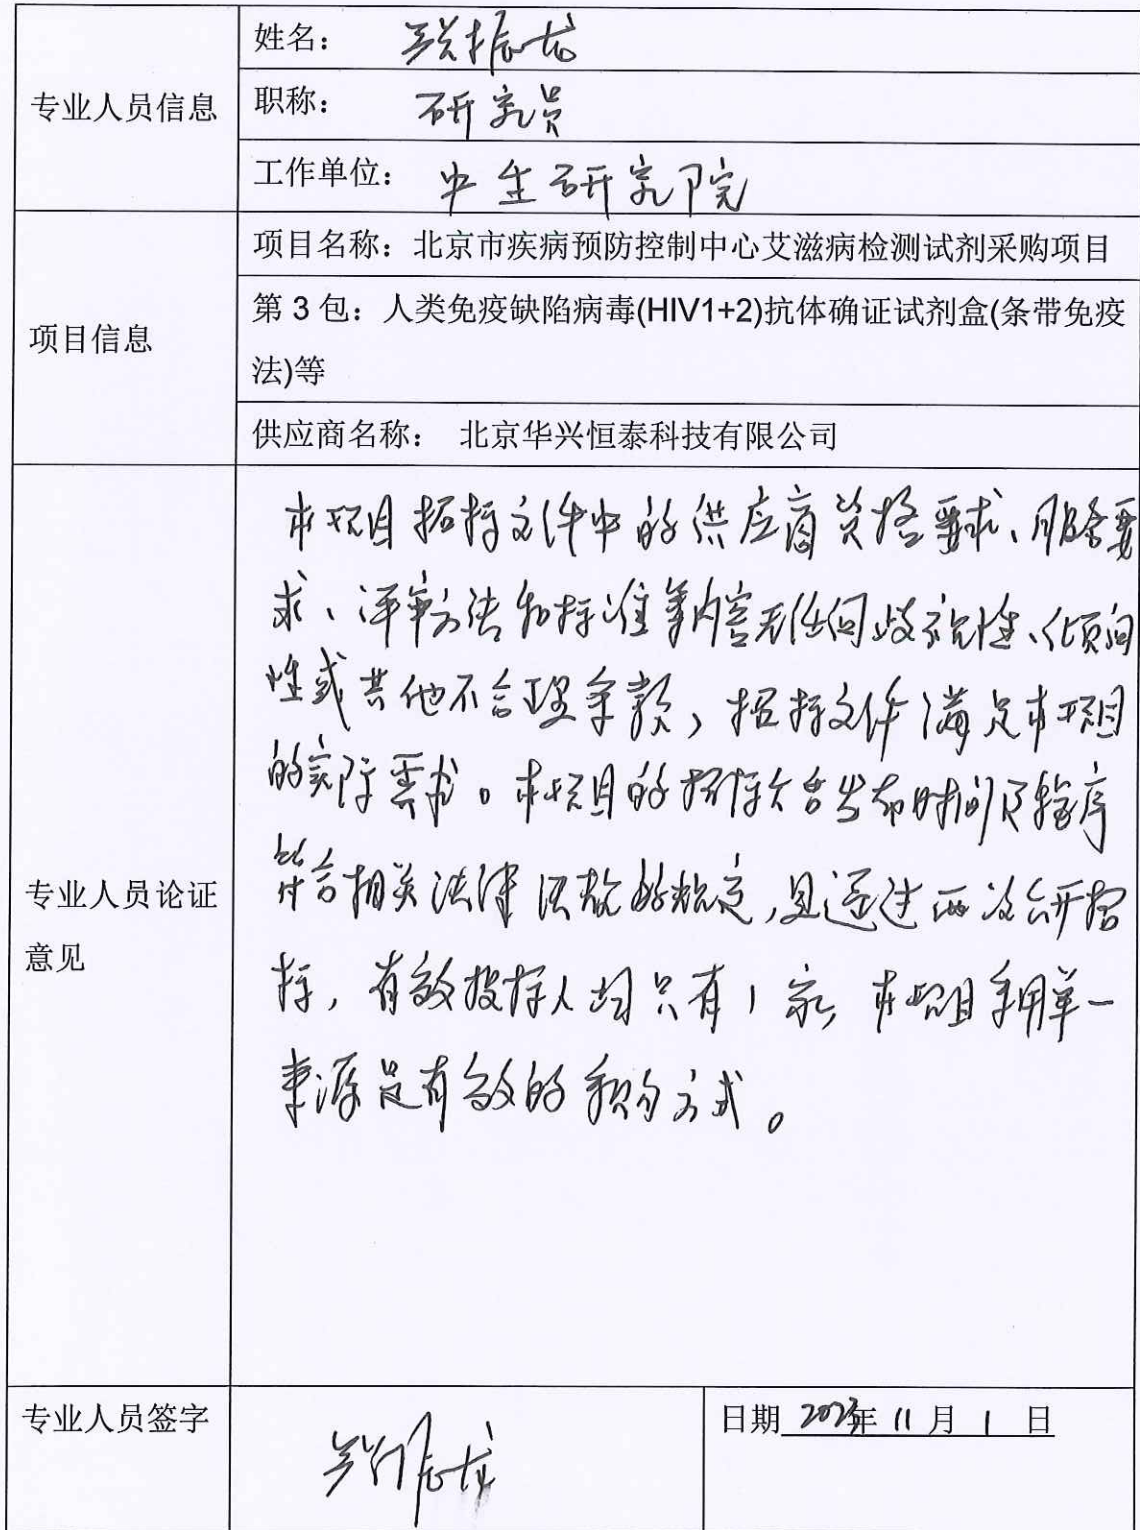 专业人员信息
姓名：振龙
职称：研究员
工作单位：中生研究院
项目信息
项目名称：北京市疾病预防控制中心艾滋病检测试剂采购项目
第 3 包：人类免疫缺陷病毒(HIV1+2)抗体确证试剂盒(条带免疫
法)等
供应商名称： 北京华兴恒泰科技有限公司
专业人员论证
意见
本项目招标文件中的供应商资格要求、服务要
求、评审方法和标准等内容无任何歧视性、倾向
性或其他不合理条款，招标文件满足本项目
的实际需求。本项目的招标公告发布时间及程序
符合相关法律法规的规定，且通过两次公开招
标，有效投标人均只有1家，本项目采用单一
来源是有效的采购方式。
专业人员签字
振龙
日期 2023年 11 月 1 日